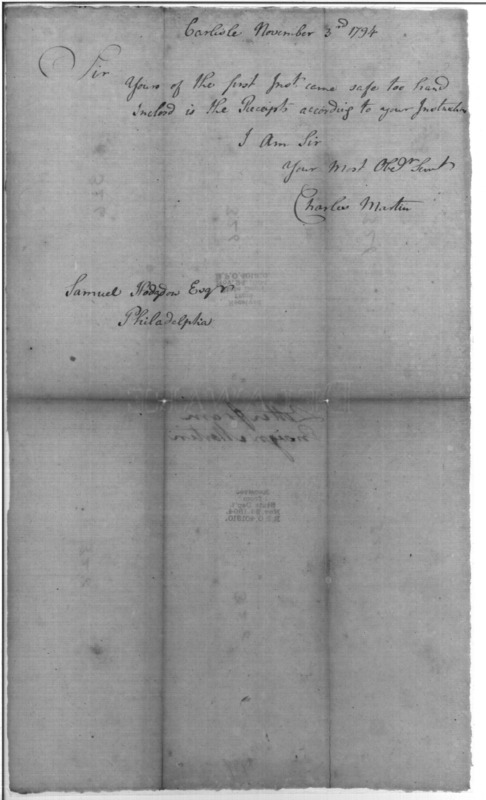 Carlisle November 3rd 1794
Sir
Yours of the first Inst. came safe too hand
Inclosd is the Receipts according to your Instruction
I Am Sir
Your Most Obedr Servt
Charles Martin
Samuel Hodgdon Esqr
Philadelphia